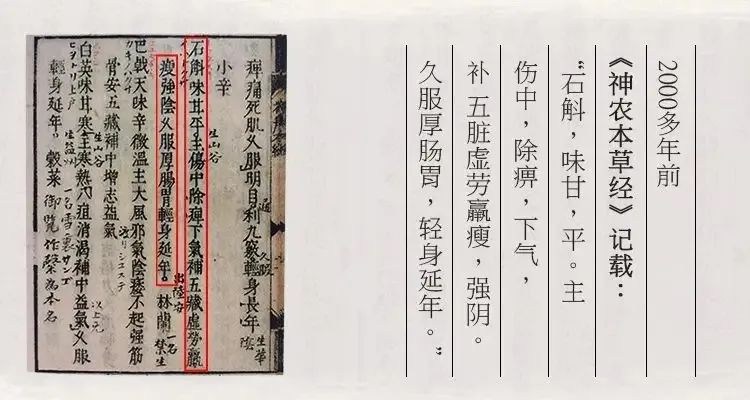 2000多年前
《神农本草经》记载：
“石斛，味甘，平。主
伤中，除痹，下气，
补 五脏虚劳羸瘦，强阴。
久服厚肠胃，轻身延年。”
痺痛死肌久服明目利九竅輕身長年
生華陰
小辛
生山谷
石斛味甘平主傷中除痺下氣補五藏虛勞羸
瘦強陰久服厚腸胃輕身延年。林蘭
一名禁生
巴戟天味辛微溫主大風邪氣陰痿不起强筋
骨安五藏補中增志益氣
生山谷
白英味甘寒主寒熱八疽消渴補中益氣久服
輕身延年。穀菜